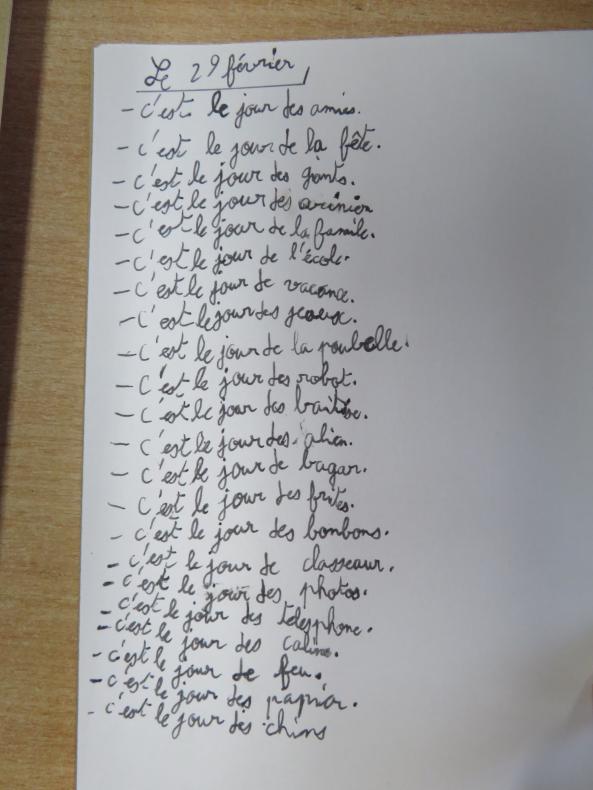 Le 29 février
- c'est le jour des amies.
- c'est le jour de la fête.
- c'est le jour des gants.
- c'est le jour des
- c'est le jour de la famile.
- c'est le jour de l'école.
- c'est le jour de vacance.
- c'est le jour des jeaux.
- c'est le jour de la poubelle.
- c'est le jour des robot.
- c'est le jour des
- c'est le jour des alien.
- c'est le jour de bagar.
- c'est le jour des frites.
- c'est le jour des bonbons.
- c'est le jour de classeaur.
- c'est le jour des photos.
- c'est le jour des telephone.
- c'est le jour des caline.
- c'est le jour de feu.
- c'est le jour des papiér.
- c'est le jour des chins